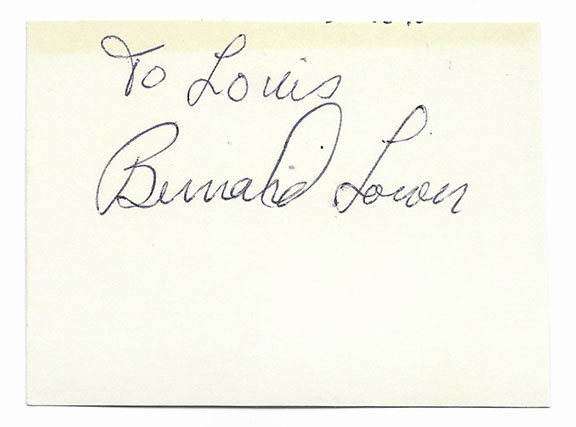 To Louis
Bernard Lown